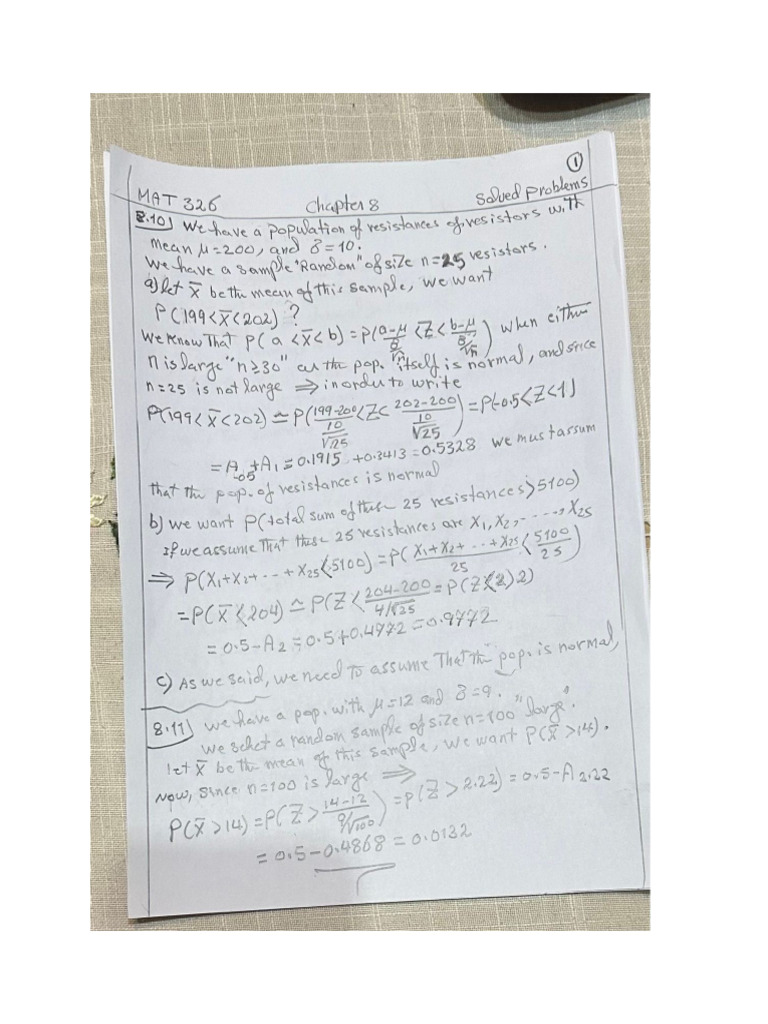 ①
MAT 326 Chapter 8 Solved Problems
8.10) We have a population of resistances of resistors with
mean μ=200, and δ=10.
We have a sample "Random" of size n=25 resistors.
a) let X̄ be the mean of this sample, we want
P(199<X̄<202)?
We know That P(a<X̄<b)=P((a-μ)/(δ/√n)<Z<(b-μ)/(δ/√n)) when either
n is large "n≥30" or the pop. itself is normal, and since
n=25 is not large ⇒ in order to write
P(199<X̄<202)≃P((199-200)/(10/√25)<Z<(202-200)/(10/√25))=P(-0.5<Z<1)
=A₀.₅+A₁=0.1915+0.3413=0.5328 we must assum
that the pop. of resistances is normal
b) we want P(total sum of these 25 resistances>5100)
If we assume That these 25 resistances are X₁,X₂,-----,X₂₅
⇒ P(X₁+X₂+--+X₂₅<5100)=P((X₁+X₂+--+X₂₅)/25<5100/25)
=P(X̄<204)≃P(Z<(204-200)/(4/√25)=P(Z<2)2)
=0.5-A₂=0.5+0.4972=0.9772
c) As we said, we need to assume That the pop. is normal,
8.11) we have a pop. with μ=12 and δ=9.
we select a random sample of size n=100 "large".
let X̄ be the mean of this sample, we want P(X̄>14).
Now, since n=100 is large ⇒
P(X̄>14)=P(Z>(14-12)/(9/√100))=P(Z>2.22)=0.5-A₂.₂₂
=0.5-0.4868=0.0132